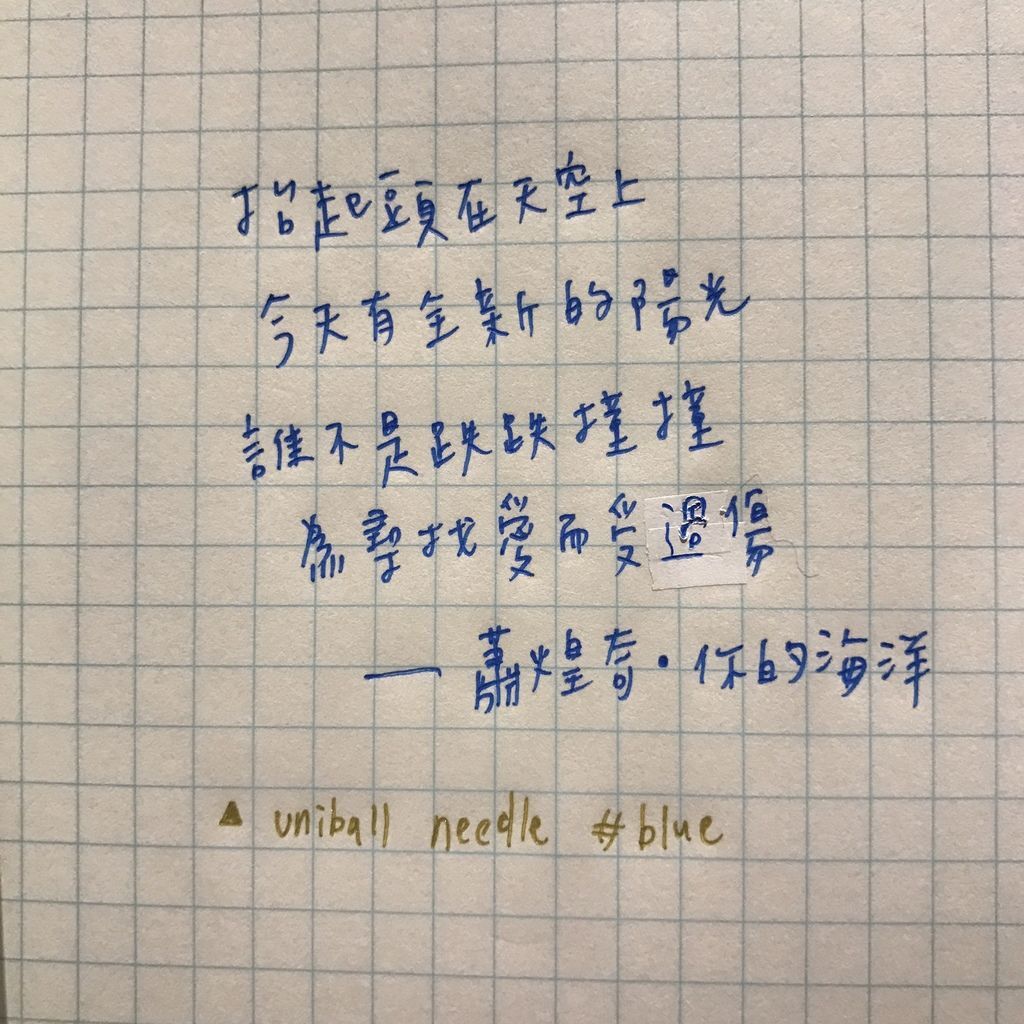 抬起頭在天空上
今天有全新的陽光
誰不是跌跌撞撞
為尋找愛而受過傷
— 蕭煌奇・你的海洋
▲ uniball needle #blue